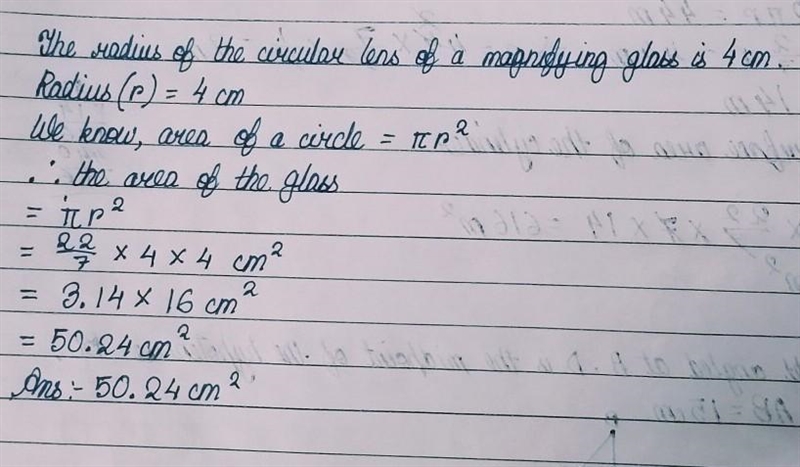 The radius of the circular lens of a magnifying glass is 4 cm.
Radius (r) = 4 cm
We know, area of a circle = πr²
∴ the area of the glass
= πr²
= 22/7 × 4 × 4 cm²
= 3.14 × 16 cm²
= 50.24 cm²
Ans:- 50.24 cm²